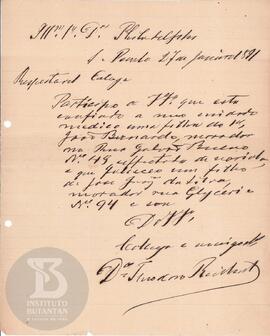 Illmo. Sr. Dr. Philadelpho
S. Paulo 27 de Janeiro 1891
Respeitavel Collega
Participo a VSa. que esta
confiada a meu cuidado
medico uma filha do Sr.
João Bernardo, morador
na Rua Galvão Bueno
No. 49, affectada de variola,
e que falleceu um filho
de José da Silva,
morador rua Glycerio
No. 94 e sou
De VSa.
Collega e amigo
Dr. Theodoro Reichert
INSTITUTO
BUTANTAN